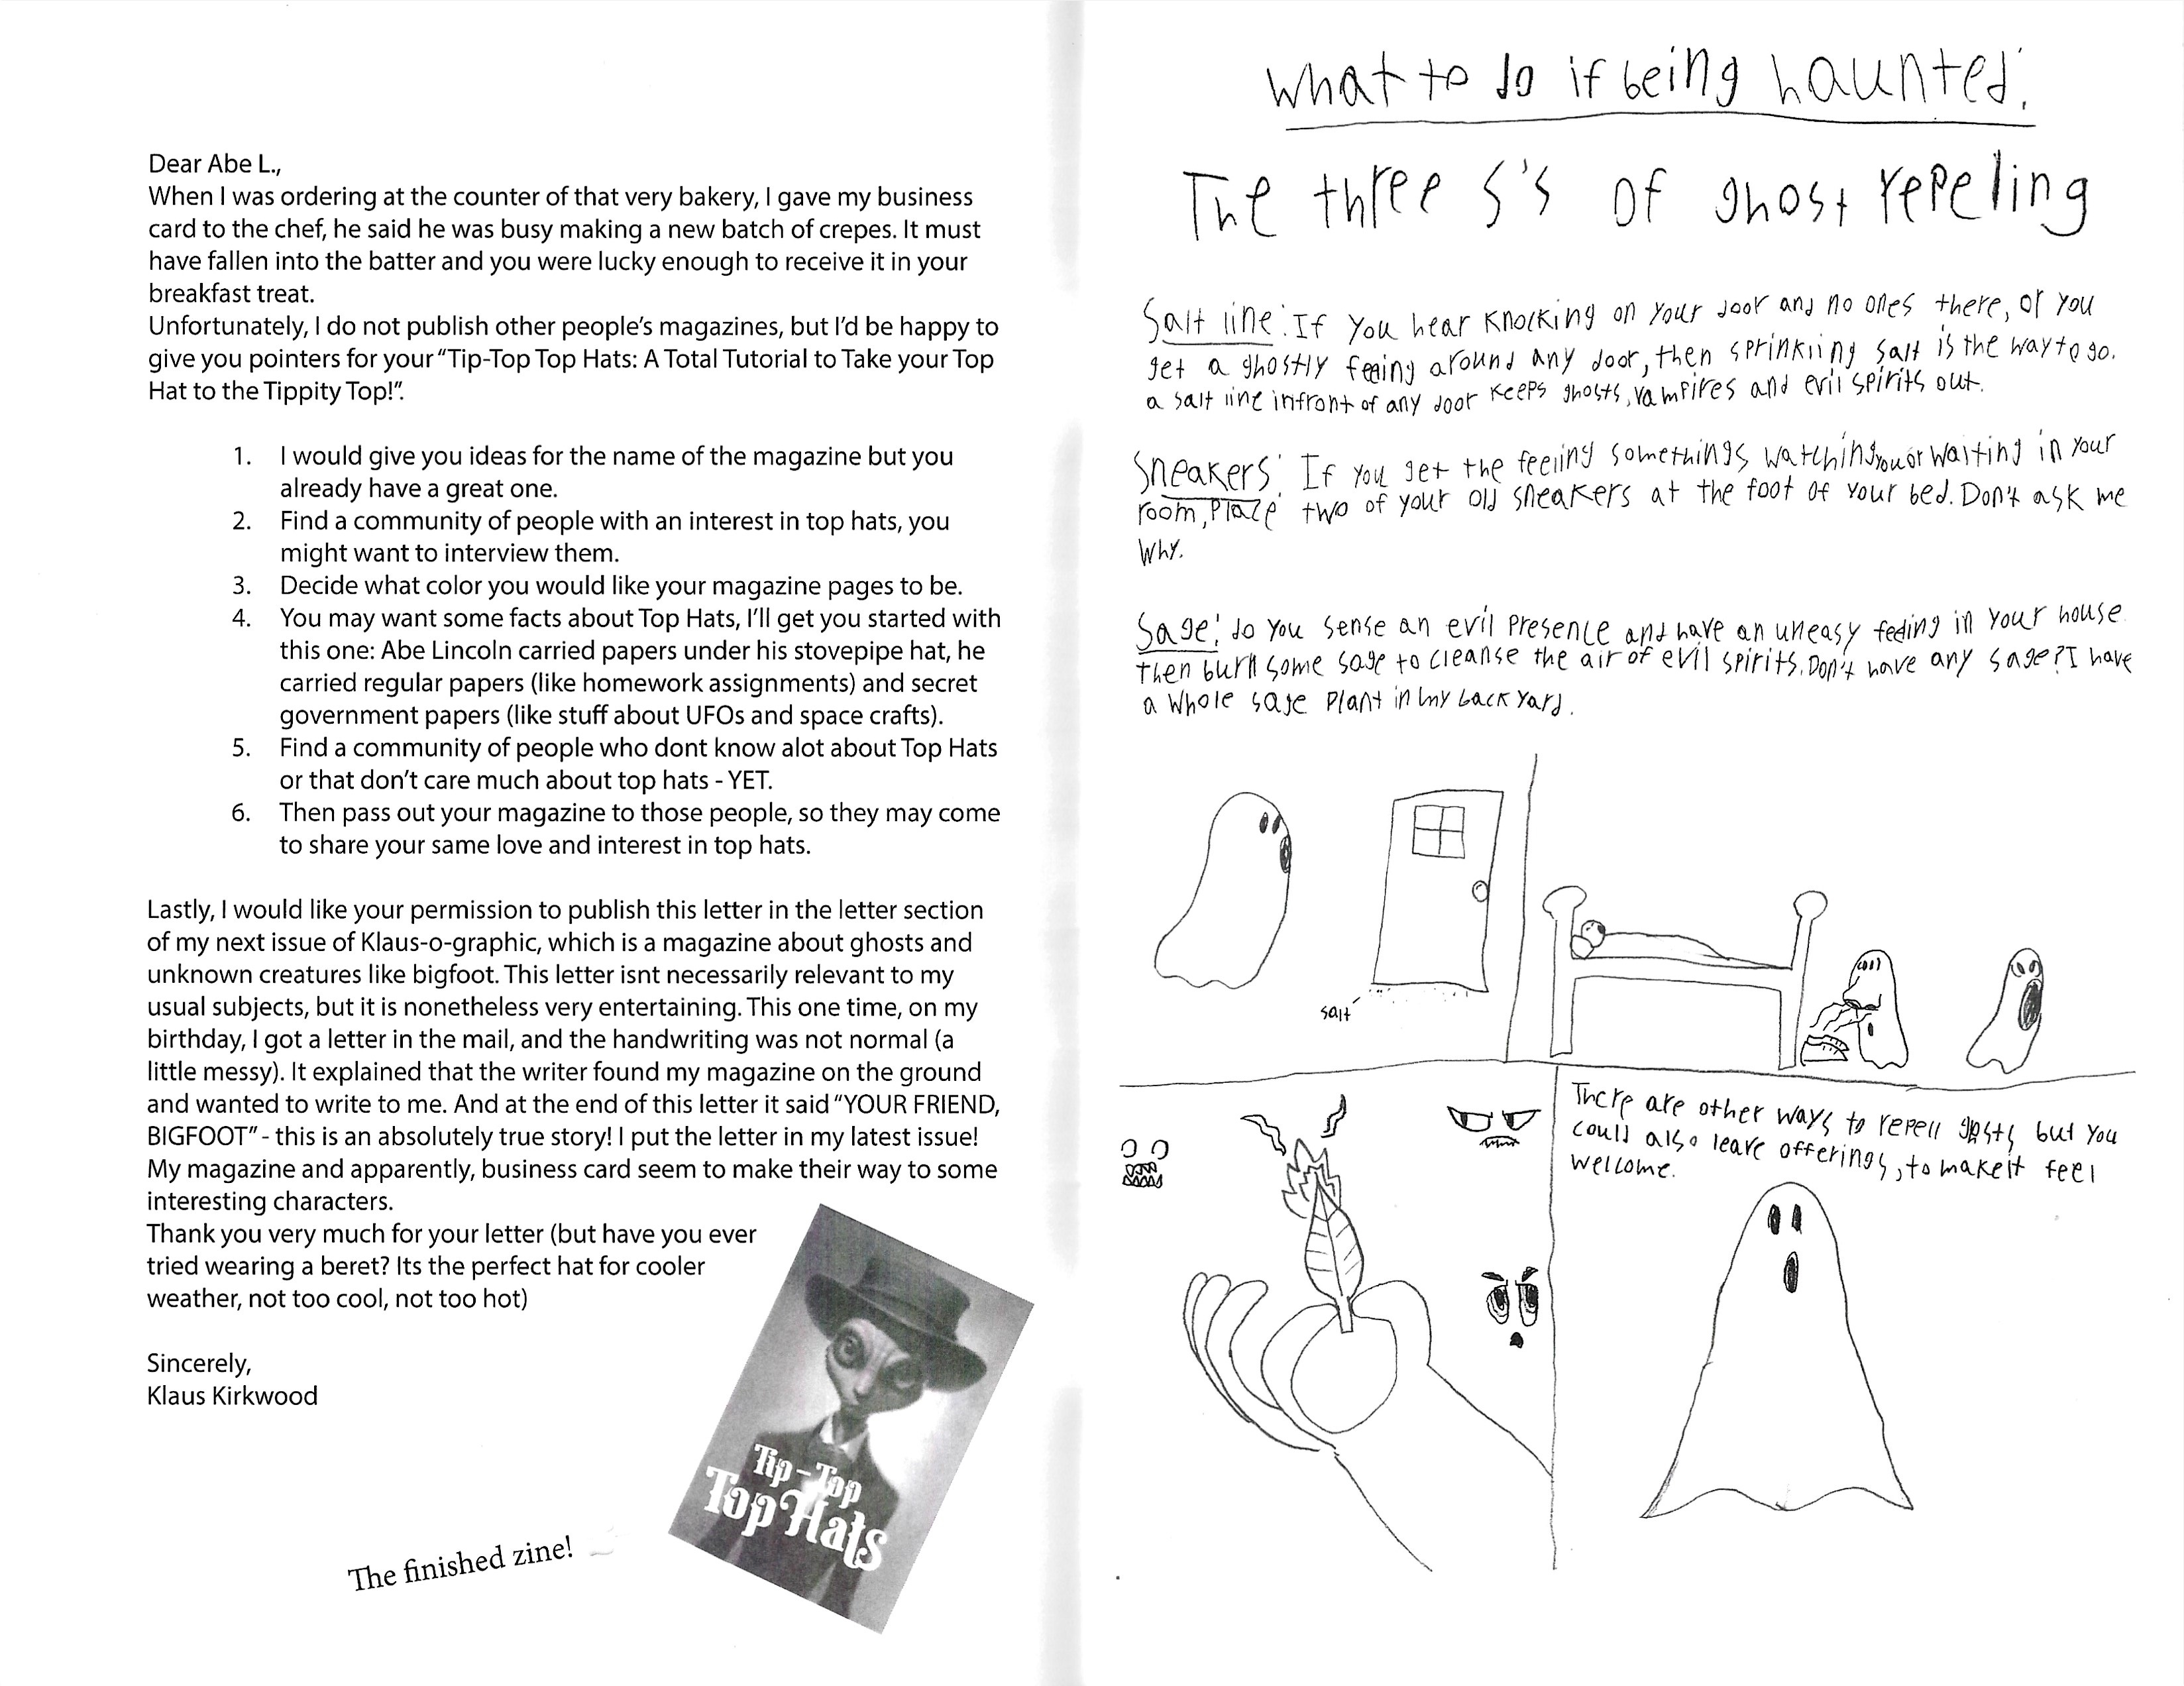 Dear Abe L.,
When I was ordering at the counter of that very bakery, I gave my business
card to the chef, he said he was busy making a new batch of crepes. It must
have fallen into the batter and you were lucky enough to receive it in your
breakfast treat.
Unfortunately, I do not publish other people's magazines, but I'd be happy to
give you pointers for your "Tip-Top Top Hats: A Total Tutorial to Take your Top
Hat to the Tippity Top!".
1. I would give you ideas for the name of the magazine but you
already have a great one.
2. Find a community of people with an interest in top hats, you
might want to interview them.
3. Decide what color you would like your magazine pages to be.
4. You may want some facts about Top Hats, I'll get you started with
this one: Abe Lincoln carried papers under his stovepipe hat, he
carried regular papers (like homework assignments) and secret
government papers (like stuff about UFOs and space crafts).
5. Find a community of people who dont know alot about Top Hats
or that don't care much about top hats - YET.
6. Then pass out your magazine to those people, so they may come
to share your same love and interest in top hats.
Lastly, I would like your permission to publish this letter in the letter section
of my next issue of Klaus-o-graphic, which is a magazine about ghosts and
unknown creatures like bigfoot. This letter isnt necessarily relevant to my
usual subjects, but it is nonetheless very entertaining. This one time, on my
birthday, I got a letter in the mail, and the handwriting was not normal (a
little messy). It explained that the writer found my magazine on the ground
and wanted to write to me. And at the end of this letter it said "YOUR FRIEND,
BIGFOOT" - this is an absolutely true story! I put the letter in my latest issue!
My magazine and apparently, business card seem to make their way to some
interesting characters.
Thank you very much for your letter (but have you ever
tried wearing a beret? Its the perfect hat for cooler
weather, not too cool, not too hot)
Sincerely,
Klaus Kirkwood
The finished zine!
Tip-Top
Top Hats
What to do if being haunted:
The three S's of ghost repeling
Salt line: If you hear knocking on your door and no ones there, or you
get a ghostly feeing around any door, then sprinkling salt is the way to go.
a salt line infront of any door keeps ghosts, vampires and evil spirits out.
Sneakers: If you get the feeling somethings watching you or waiting in your
room, Place two of your old sneakers at the foot of your bed. Don't ask me
why.
Sage: do you sense an evil presence and have an uneasy feeling in your house
then burn some sage to cleanse the air of evil spirits. Don't have any sage? I have
a whole sage plant in my back yard.
salt
There are other ways to repell ghosts, but you
could also leave offerings, to make it feel
wellcome.